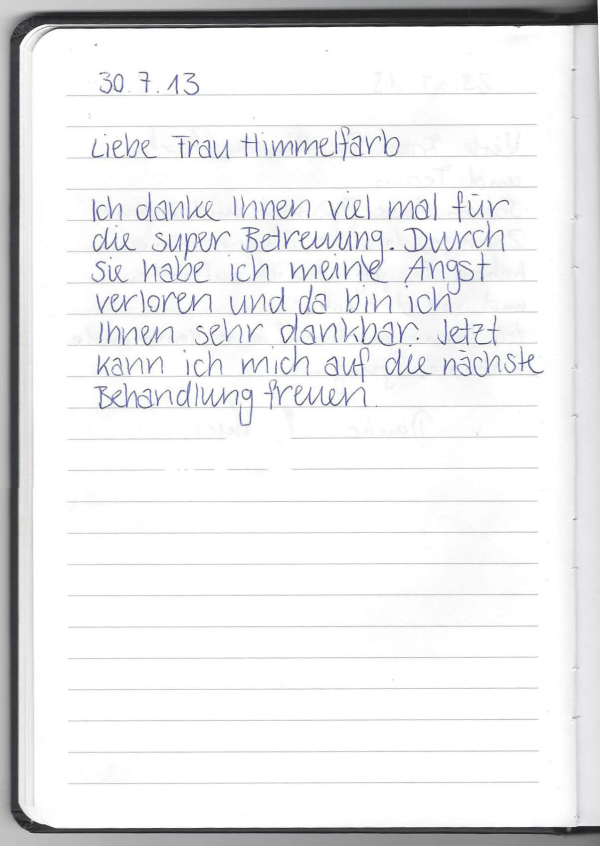 30.7.13
Liebe Frau Himmelfarb
Ich danke Ihnen viel mal für
die super Betreuung. Durch
sie habe ich meine Angst
verloren und da bin ich
Ihnen sehr dankbar. Jetzt
kann ich mich auf die nächste
Behandlung freuen.